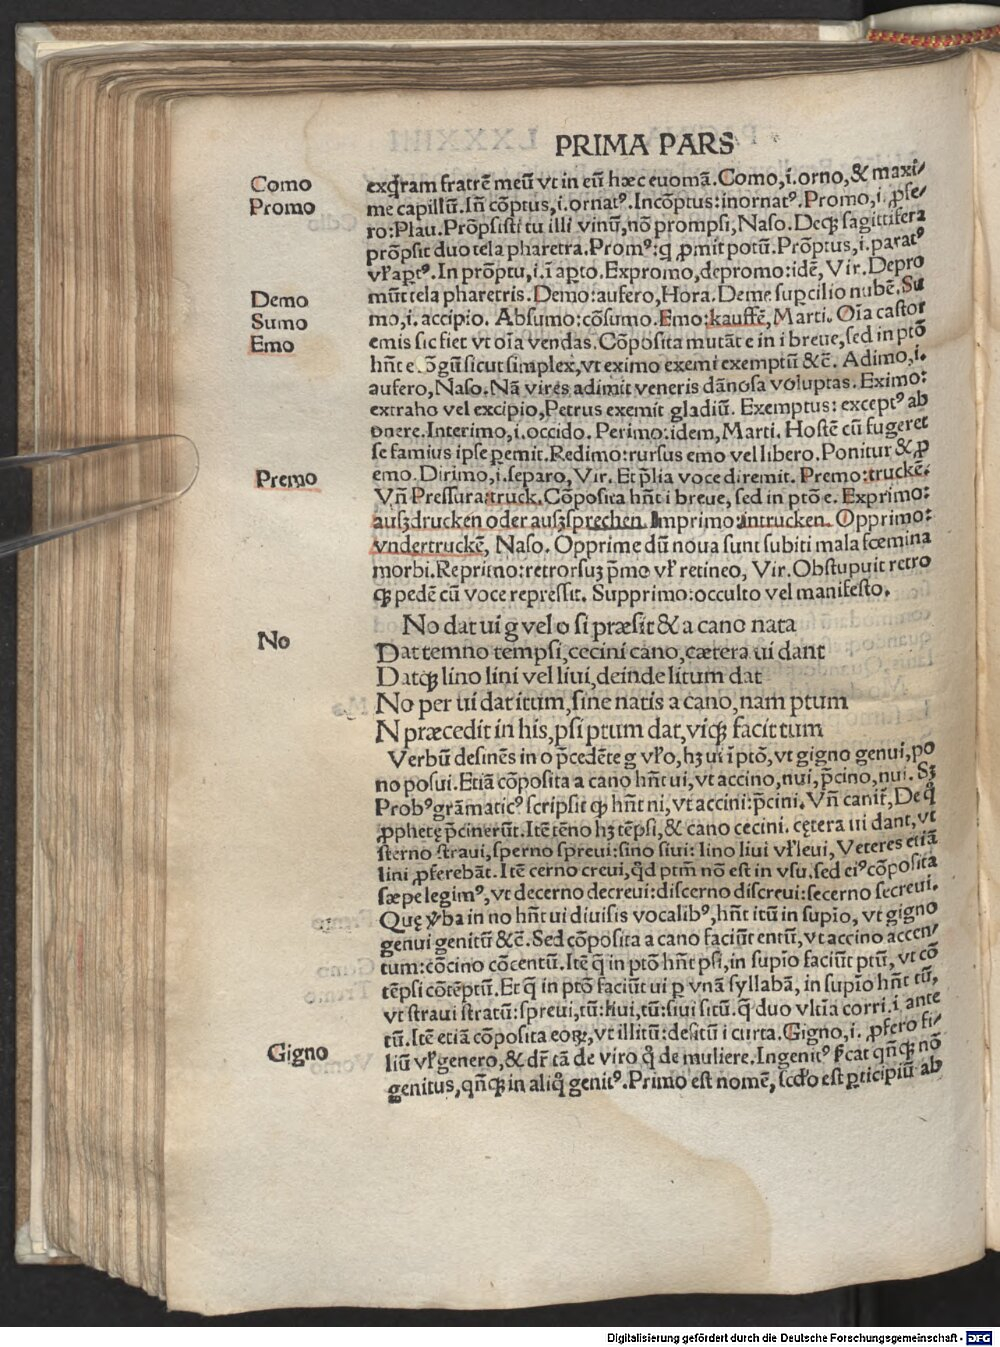 PRIMA PARS
Como
Promo
Demo
Sumo
Emo
Premo
No
Gigno
exq̃ram fratrẽ meũ vt in eũ hæc euomã. Como, i. orno, & maxi/
me capillũ. Iñ cõptus, i. ornatꝰ. Incõptus: inornatꝰ. Promo, i. ꝓfe/
ro: Plau. Prõpsisti tu illi vinũ, nõ prompsi, Naso. Deqꝫ sagittifera
prõpsit duo tela pharetra. Promꝰ: q ꝓmit potũ. Prõptus, i. paratꝰ
vł aptꝰ. In prõptu, i. ĩ apto. Expromo, depromo: idẽ, Vir. Depro
mũt tela pharetris. Demo: aufero, Hora. Deme supcilio nubẽ. Su
mo, i. accipio. Absumo: cõsumo. Emo: kauffẽ, Marti. Oĩa castor
emis sic fiet vt oĩa vendas. Cõposita mutãt e in i breue, sed in ptõ
hñt e õgũ sicut simplex, vt eximo exemi exemptũ &c̃. Adimo, i.
aufero, Naso. Nã vires adimit veneris dãnosa voluptas. Eximo:
extraho vel excipio, Petrus exemit gladiũ. Exemptus: exceptꝰ ab
onere. Interimo, i. occido. Perimo: idem, Marti. Hostẽ cũ fugeret
se famius ipse ꝑemit. Redimo: rursus emo vel libero. Ponitur & ꝓ
emo. Dirimo, i. separo, Vir. Et p̃lia voce diremit. Premo: truckẽ.
Vñ Pressura: truck. Cõposita hñt i breue, sed in ptõ e. Exprimo:
auſꝫdrucken oder auſꝫsprechen. Imprimo: intrucken. Opprimo:
vndertruckẽ, Naso. Opprime dũ noua sunt subiti mala fœmina
morbi. Reprimo: retrorsuꝫ p̃mo vł retineo, Vir. Obstupuit retro
qꝫ pedẽ cũ voce repressit. Supprimo: occulto vel manifesto.
No dat ui g vel o si præsit & a cano nata
Dat temno tempsi, cecini cano, cætera ui dant
Datqꝫ lino lini vel liui, deinde litum dat
No per ui dat itum, sine natis a cano, nam ptum
N præcedit in his, psi ptum dat, viqꝫ facit tum
Verbũ desinẽs in o p̃cedẽte g vł o, hꝫ ui ĩ ptõ, vt gigno genui, po
no posui. Etiã cõposita a cano hñt ui, vt accino, nui, p̃cino, nui. Sꝫ
Probꝰ grãmaticꝰ scripsit qꝫ hñt ni, vt accini: p̃cini. Vñ canit̃, De q̃
ꝓphetę p̃cinerũt. Itẽ tẽno hꝫ tẽpsi, & cano cecini. cętera ui dant, vt
sterno straui, sperno spreui: sino siui: lino liui vł leui, Veteres etiã
lini ꝓferebãt. Itẽ cerno creui, q̃d ptm̃ nõ est in vsu. sed eiꝰ cõposita
sæpe legimꝰ, vt decerno decreui: discerno discreui: secerno secreui.
Quę ṽba in no hñt ui diuisis vocalibꝰ, hñt itũ in supĩo, vt gigno
genui genitũ &c̃. Sed cõposita a cano faciũt entũ, vt accino accen/
tum: cõcino cõcentũ. Itẽ q̃ in ptõ hñt psi, in supĩo faciũt ptũ, vt cõ
tẽpsi cõtẽptũ. Et q̃ in ptõ faciũt ui ꝑ vnã syllabã, in supĩo hñt tũ,
vt straui stratũ: spreui, tũ: liui, tũ: siui sitũ. q̃ duo vltĩa corri. i ante
tũ. Itẽ etiã cõposita eoꝝ, vt illitũ: desitũ i curta. Gigno, i. ꝓfero fi/
liũ vł genero, & dr̃ tã de viro q̃ de muliere. Ingenitꝰ p̃cat qñqꝫ nõ
genitus, qñqꝫ in aliq̃ genitꝰ. Primo est nomẽ, scđo est ꝑticipiũ ab
Digitalisierung gefördert durch die Deutsche Forschungsgemeinschaft - DFG